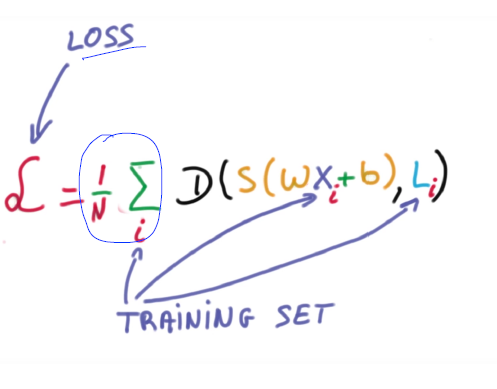 LOSS
ℒ = 1/N Σ_i D(S(WX_i+b), L_i)
TRAINING SET